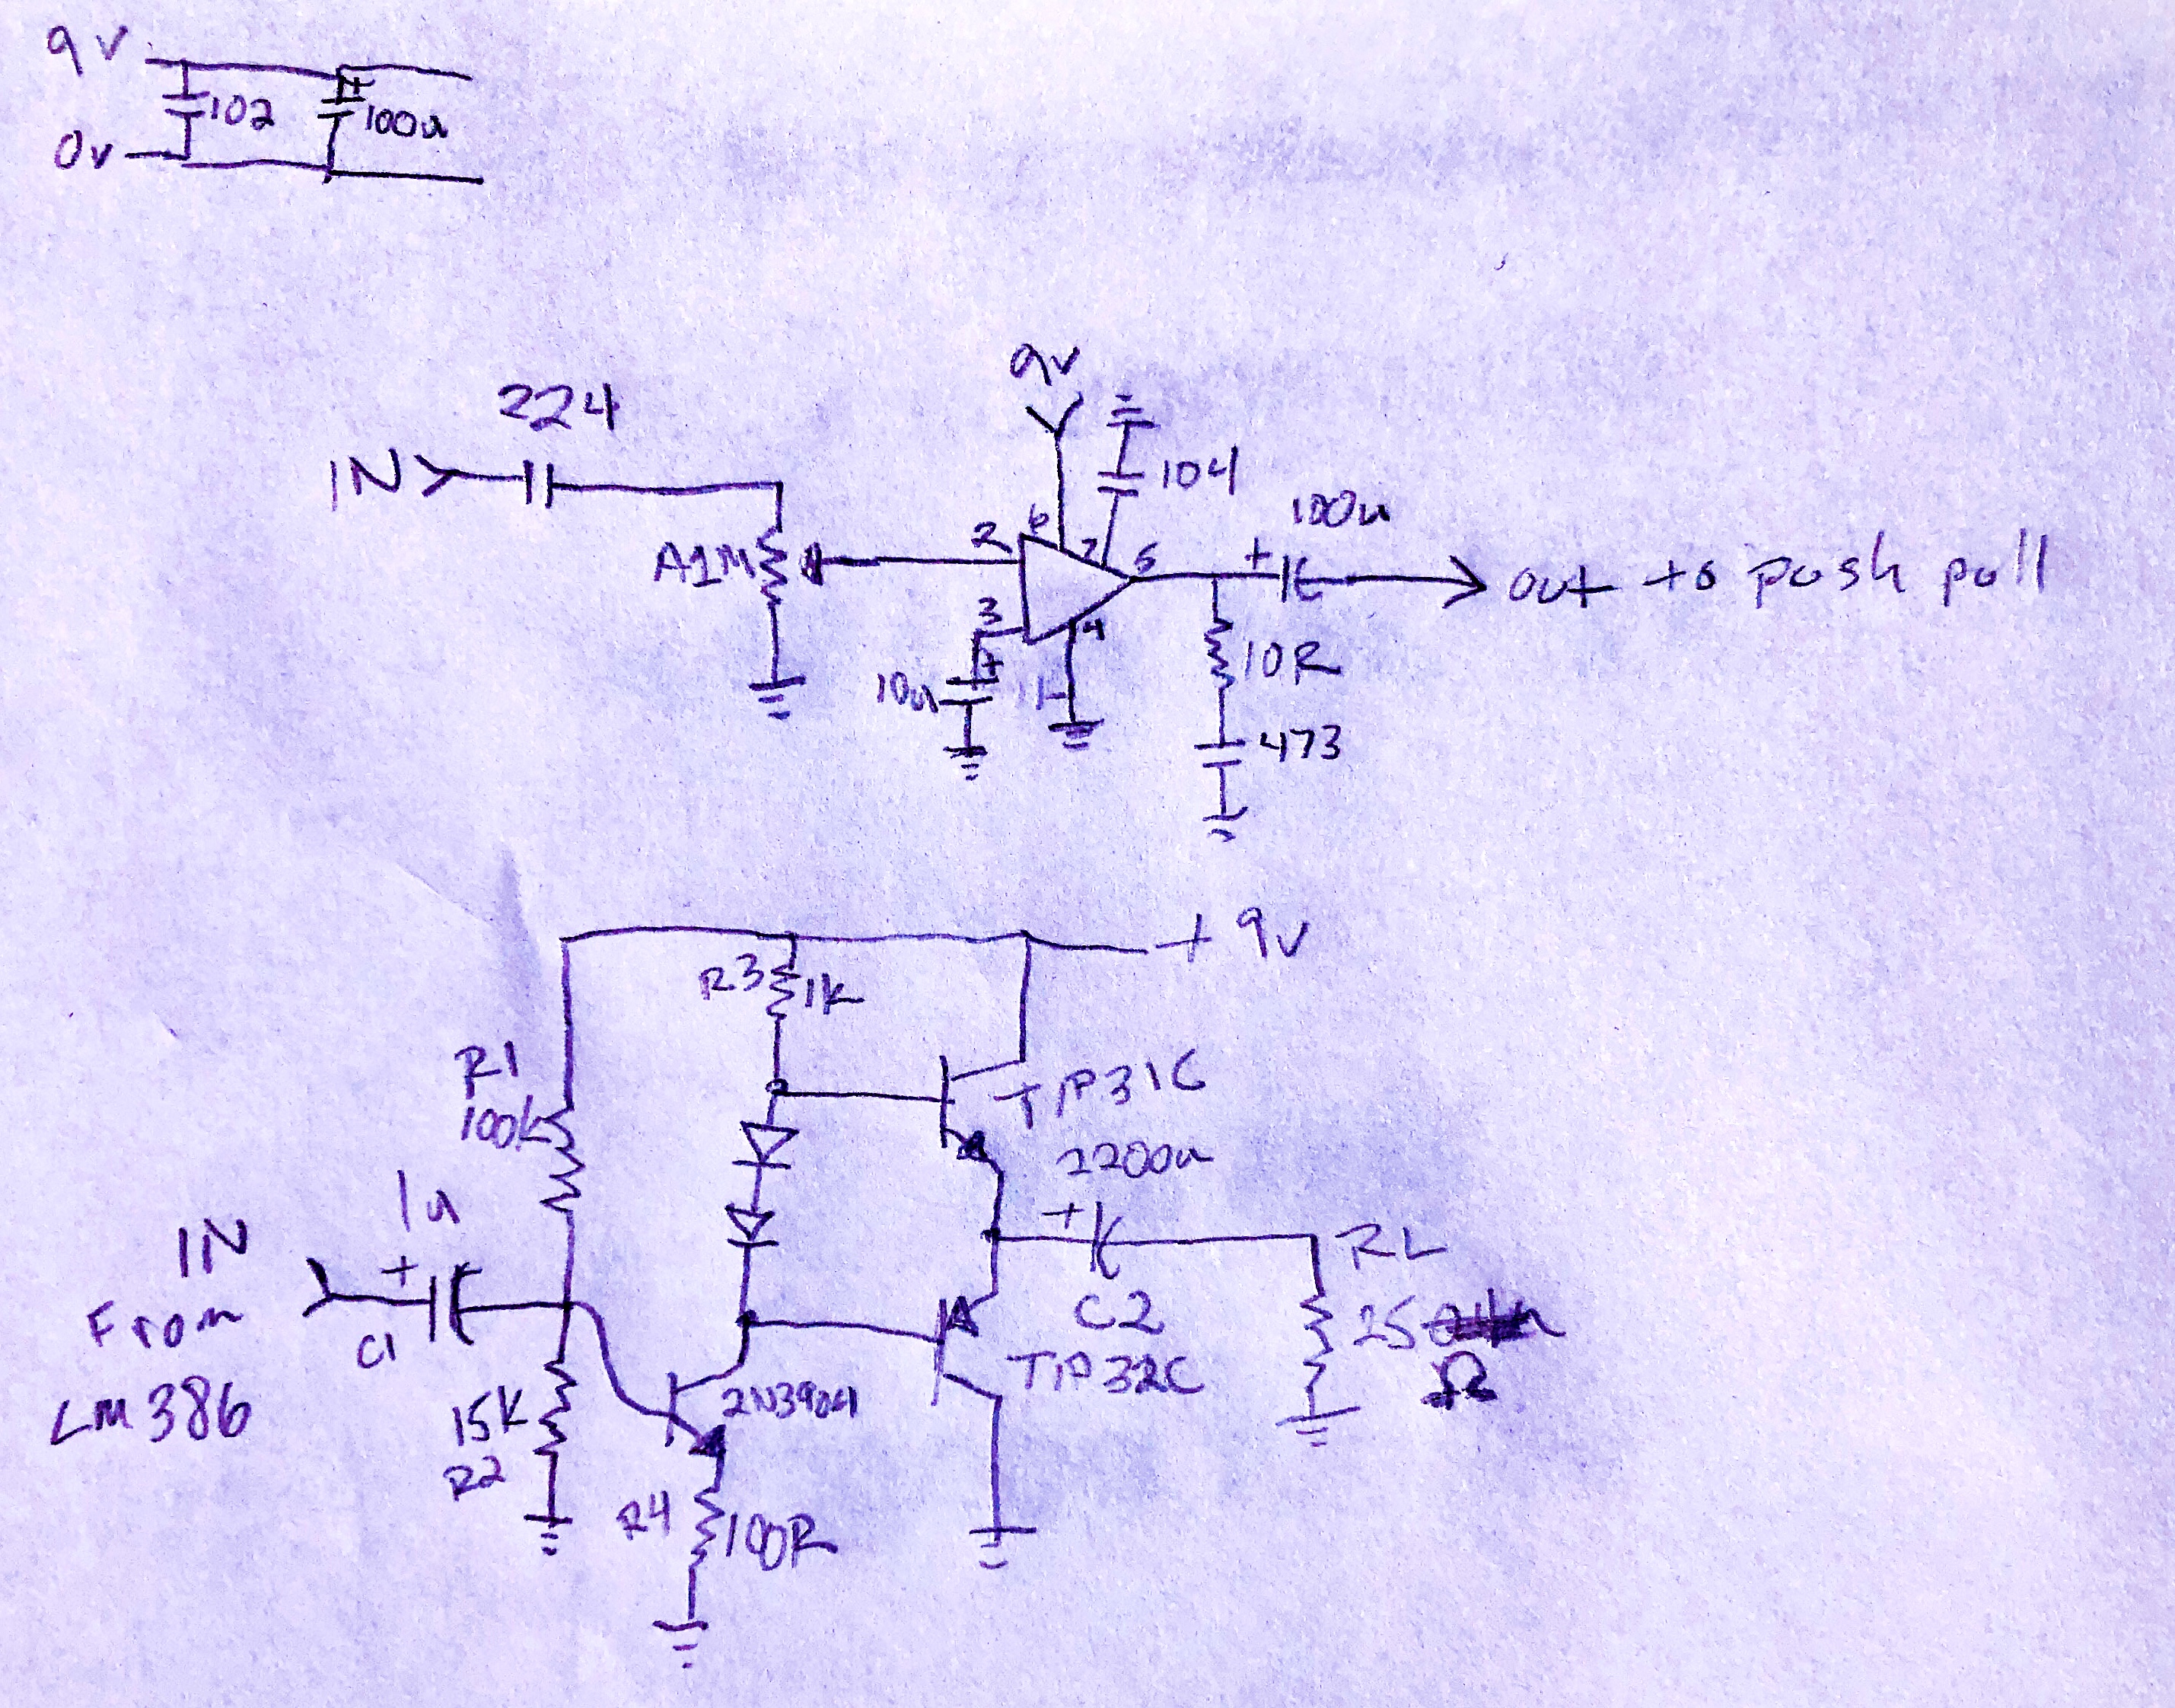 9V
102
100u
0v
9v
224
104
IN
100u
2
6
7
5
A1M
out to push pull
3
4
10R
10u
473
+9v
R3
1K
R1
TIP31C
100K
2200u
1u
IN
+
RL
From
C1
C2
25
Ω
TIP32C
LM386
2N3904
15K
R2
R4
100R